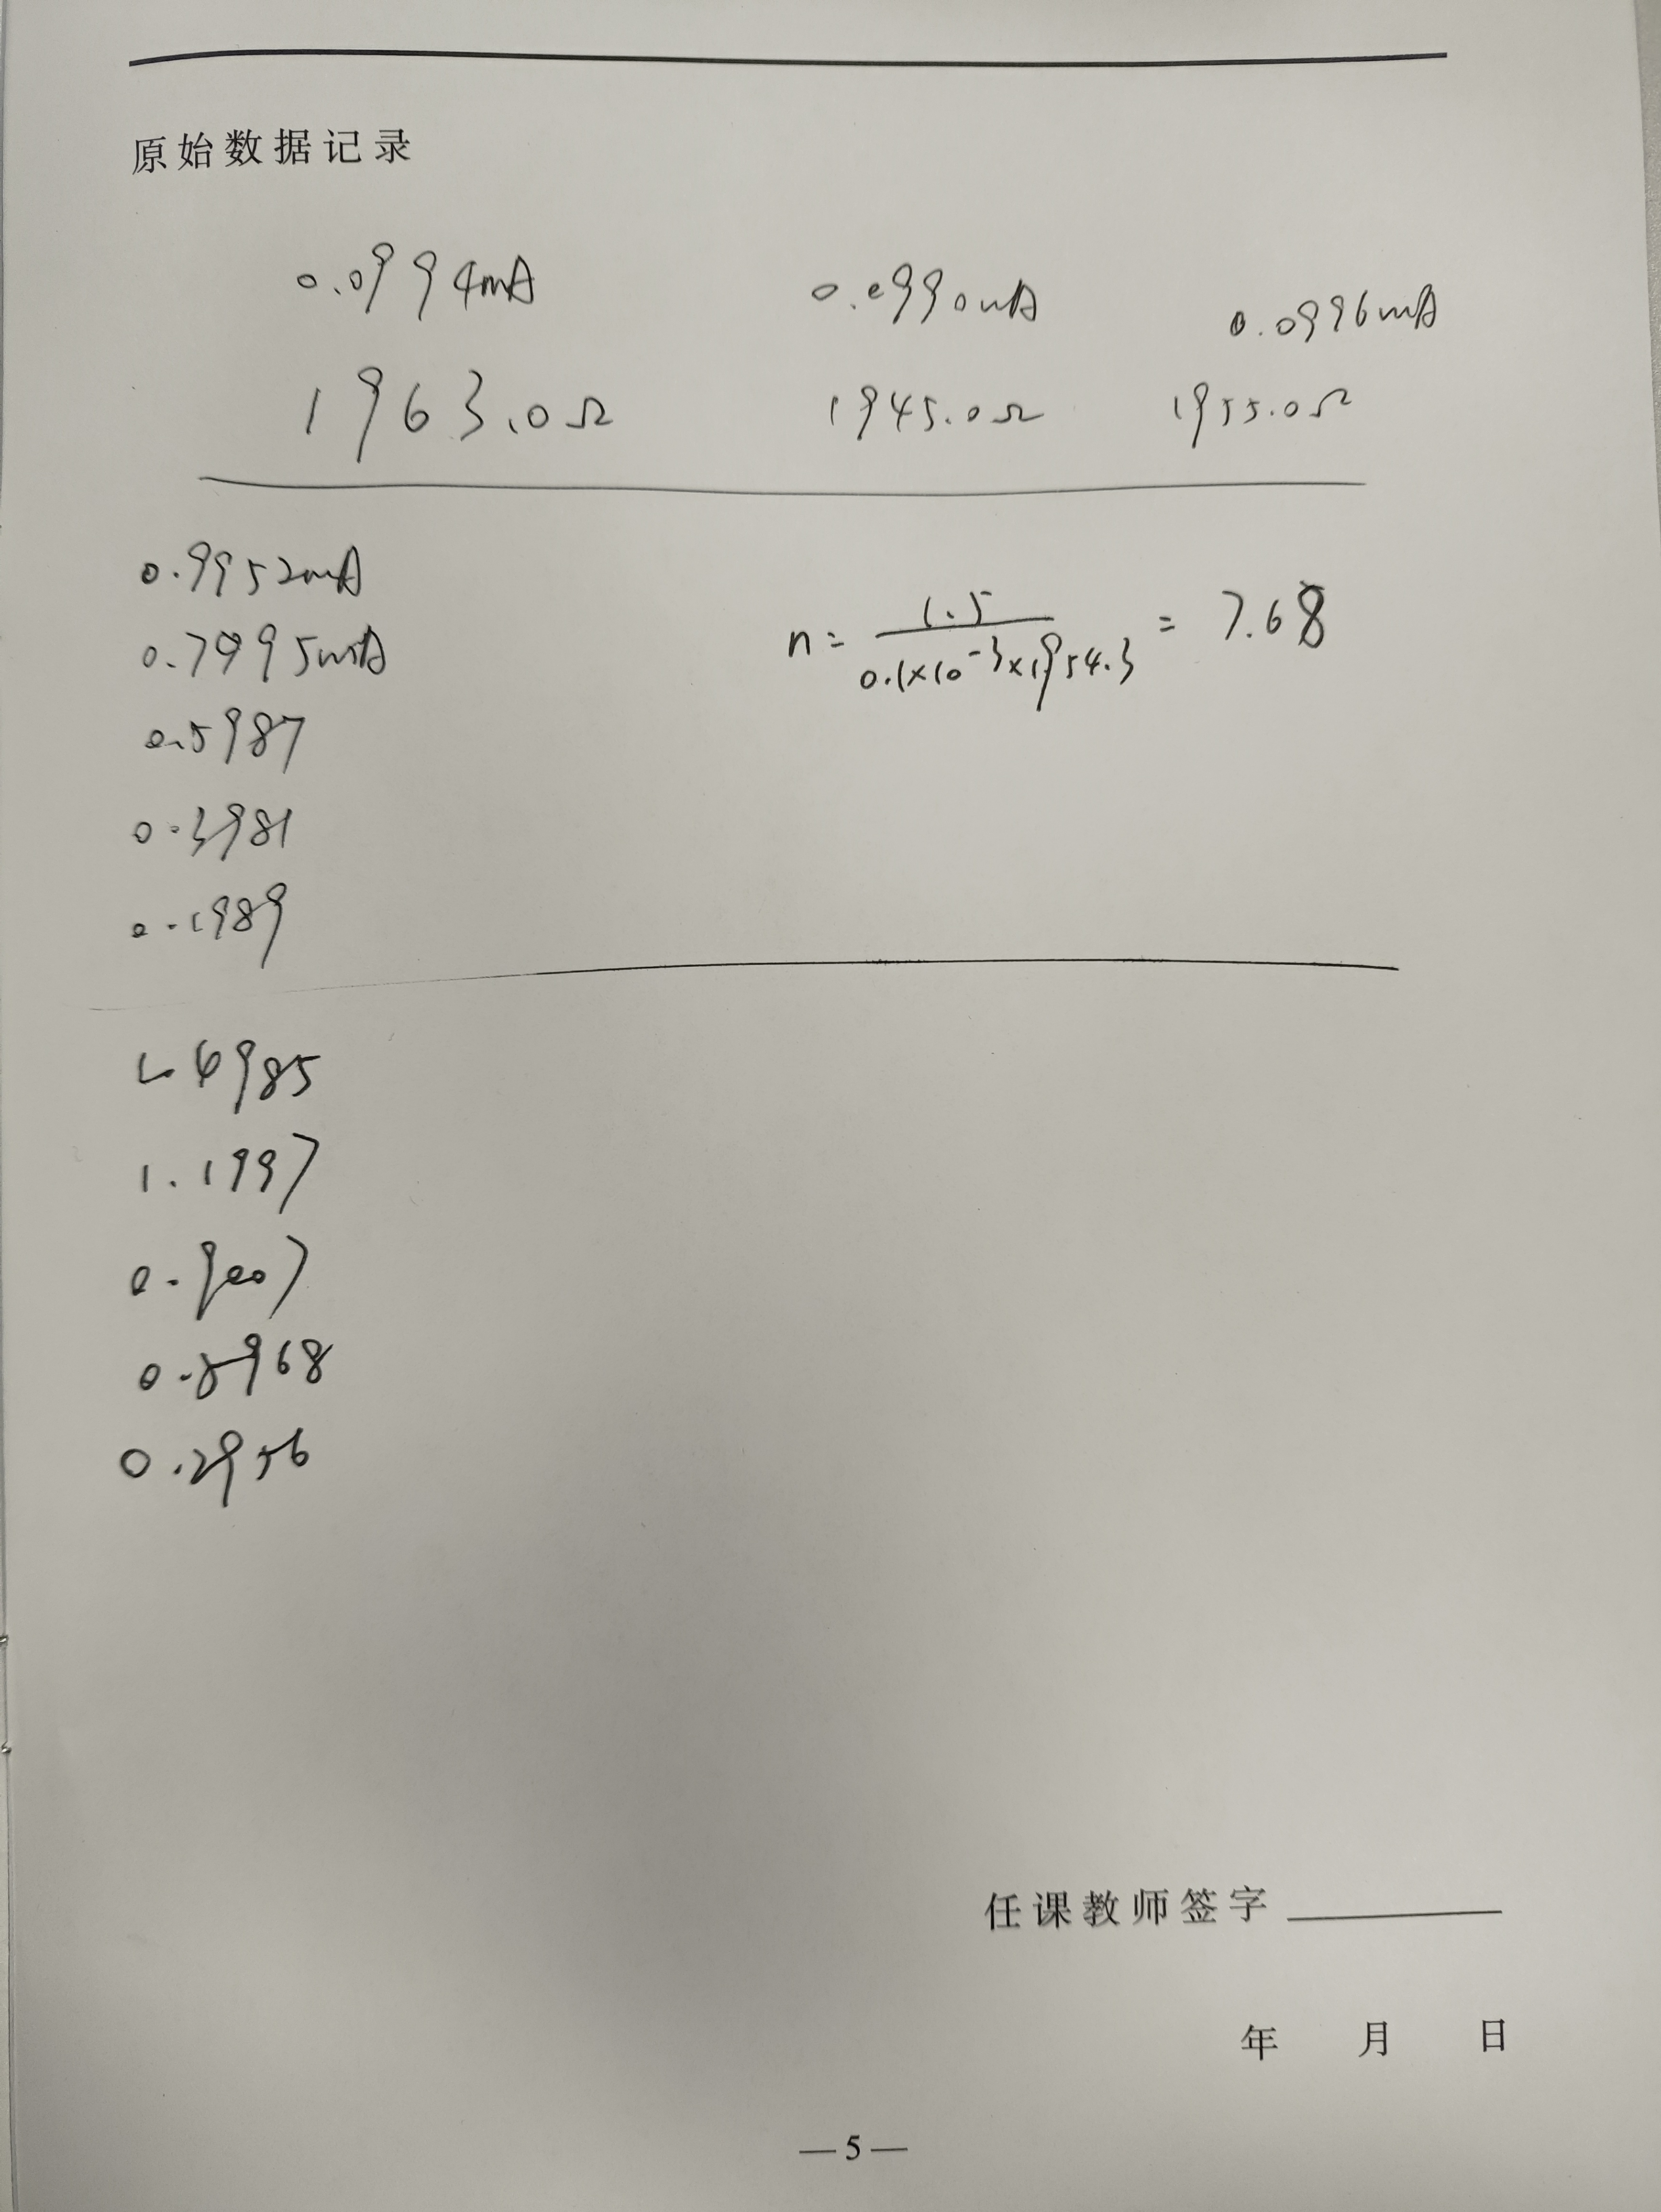 原始数据记录
0.0994mA 0.0990mA 0.0996mA
1963.0Ω 1945.0Ω 1955.0Ω
0.9952mA
0.7995mA
n= 1.5 / 0.1×10⁻³×1954.3 = 7.68
0.5987
0.3981
0.1989
1.4985
1.1997
0.9007
0.5968
0.2956
任课教师签字
年 月 日
—5—